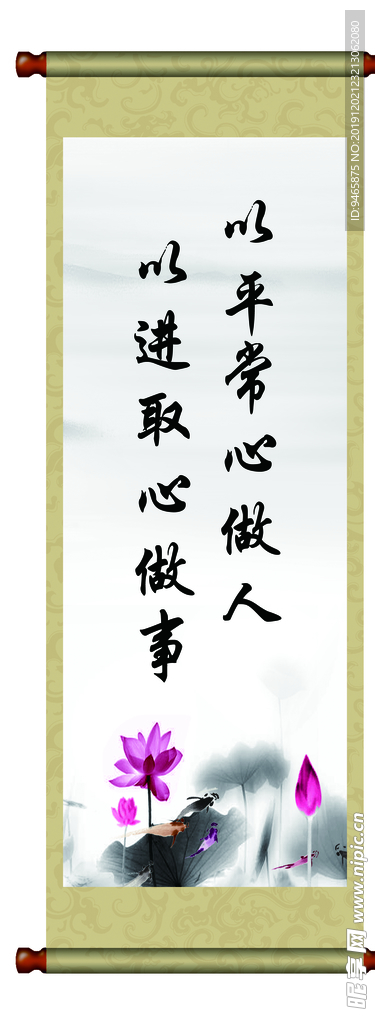 以平常心做人
以进取心做事
ID:9465875 NO:20191202123213062080
昵享网 www.nipic.cn